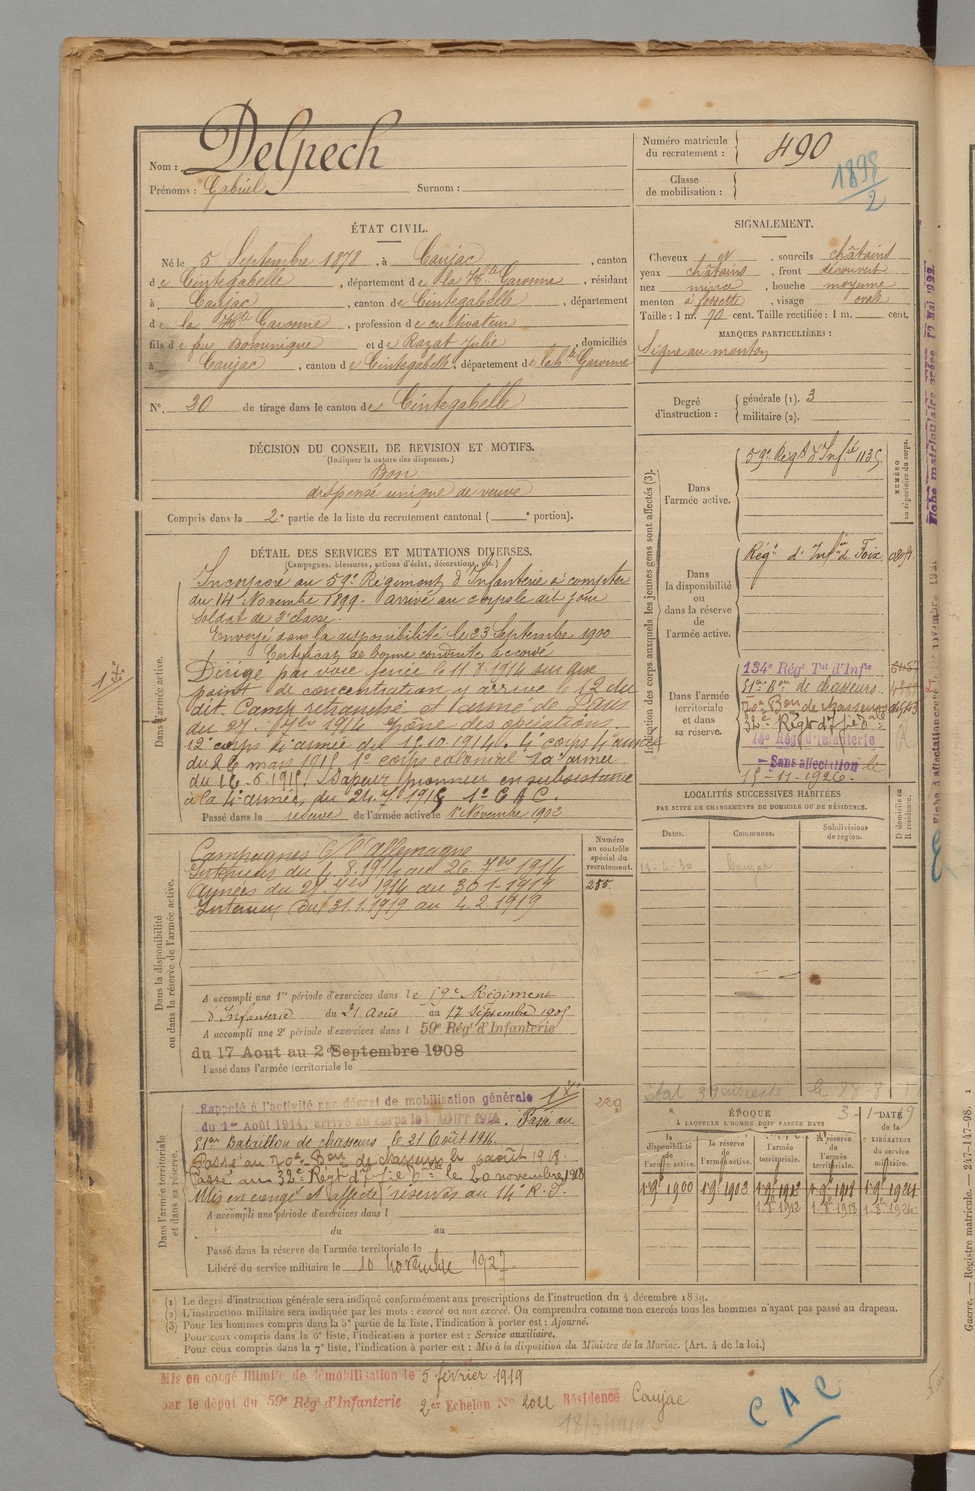 Nom : Delpech
Prénoms : Gabriel Surnom :
Numéro matricule du recrutement : 490
Classe de mobilisation :
1898/2
ÉTAT CIVIL.
Né le 5 Septembre 1878, à Caujac, canton
de Cintegabelle, département de la Hte Garonne, résidant
à Caujac, canton de Cintegabelle, département
de la Hte Garonne, profession de cultivateur
fils de feu Dominique et de Razat Julie, domiciliés
à Caujac, canton de Cintegabelle, département de la Hte Garonne
N°. 20 de tirage dans le canton de Cintegabelle
SIGNALEMENT.
Cheveux et, sourcils châtains
yeux châtains, front découvert
nez mince, bouche moyenne
menton à fossette, visage ovale
Taille : 1 m. 70 cent. Taille rectifiée : 1 m. cent.
MARQUES PARTICULIÈRES :
Signe au menton
Degré d'instruction : générale (1). 3
militaire (2).
DÉCISION DU CONSEIL DE REVISION ET MOTIFS.
(Indiquer la nature des dispenses.)
Bon
dispensé unique de veuve
Compris dans la 2e partie de la liste du recrutement cantonal ( e portion).
DÉTAIL DES SERVICES ET MUTATIONS DIVERSES.
(Campagnes, blessures, actions d'éclat, décorations, etc.)
Dans l'armée active.
Incorporé au 59e Régiment d'Infanterie à compter
du 14 Novembre 1899. arrivé au corps le dit jour
soldat de 2e classe.
Envoyé dans la disponibilité le 23 Septembre 1900
Certificat de bonne conduite accordé
Dirigé par voie ferrée le 11 8 1914 sur gare
point de concentration y arrive le 12 du
dit. Camp retranché et armé de Paris
du 27. 7bre 1914 zône des opérations.
12e corps 4e armée du 15.10.1914. 4e corps 4e armée
du 26 mars 1915 1e corps colonial 4e armée
du 16.6.1915. Sapeur pionnier en subsistance
à la 4e armée, du 24. 1915 1e C A C.
Passé dans la réserve de l'armée active le 1er Novembre 1902
Indication des corps auxquels les jeunes gens sont affectés (3).
NUMÉRO au répertoire du corps.
Dans l'armée active.
59e Régt d'Inf.ie 1135
Dans la disponibilité ou dans la réserve de l'armée active.
Régt d'Inf.ie de Foix
Dans l'armée territoriale et dans sa réserve.
134e Régt Tal d'Infie
51e Bon de chasseurs
70e Bon de chasseurs
32e Régt d'
14e Rég d'Infanterie
Sans affectation le
15-11-1926
LOCALITÉS SUCCESSIVES HABITÉES
PAR SUITE DE CHANGEMENTS DE DOMICILE OU DE RÉSIDENCE.
D domicile ou R résidence.
Dates. Communes. Subdivisions de région.
Dans la disponibilité ou dans la réserve de l'armée active.
Campagnes c/ l'Allemagne
Intérieur du 4.8.1914 au 26 7bre 1914
Armées du 27. 7bre 1914 au 30 1-1919
Intérieur du 31.1.1919 au 4.2.1919
Numéro au contrôle spécial du recrutement.
255.
A accompli une 1re période d'exercices dans le 59e Régiment
d'Infanterie du 21 Août au 17 Septembre 1905
A accompli une 2e période d'exercices dans l 59e Rég' d'Infanterie
du 17 Aout au 2 Septembre 1908
Passé dans l'armée territoriale le
Dans l'armée territoriale et dans sa réserve.
Rappelé à l'activité par décret de mobilisation générale
du 1er Août 1914, arrivé au corps le 4 AOUT 1914. Passé au
51e Bataillon de chasseurs le 21 Août 1914
Passé au 70e Bon de chasseurs le 6 août 1918
Passé au 32e Régt d' le 20 novembre 1918
Mis en congé et affecté réserves au 14e R.I.
A accompli une période d'exercices dans l
du au
Passé dans la réserve de l'armée territoriale le
Libéré du service militaire le 10 novembre 1927
229
ÉPOQUE
À LAQUELLE L'HOMME DOIT PASSER DANS
la disponibilité de l'armée active. la réserve de l'armée active. l'armée territoriale. la réserve de l'armée territoriale.
DATE de la LIBÉRATION du service militaire.
1 9e 1900 1 9e 1902 1 9e 1912 1 9e 1918 1 9e 1924
(1) Le degré d'instruction générale sera indiqué conformément aux prescriptions de l'instruction du 4 décembre 1889.
(2) L'instruction militaire sera indiquée par les mots : exercé ou non exercé. On comprendra comme non exercés tous les hommes n'ayant pas passé au drapeau.
(3) Pour les hommes compris dans la 5e partie de la liste, l'indication à porter est : Ajourné.
Pour ceux compris dans la 6e liste, l'indication à porter est : Service auxiliaire.
Pour ceux compris dans la 7e liste, l'indication à porter est : Mis à la disposition du Ministre de la Marine. (Art. 4 de la loi.)
Mis en congé illimité de démobilisation le 5 février 1919
par le dépôt du 59e Rég' d'Infanterie 2er Echelon N° 2022 Résidence Caujac
18/3/1919
C A C
Guerre. — Registre matricule. — 247-147-98. 1